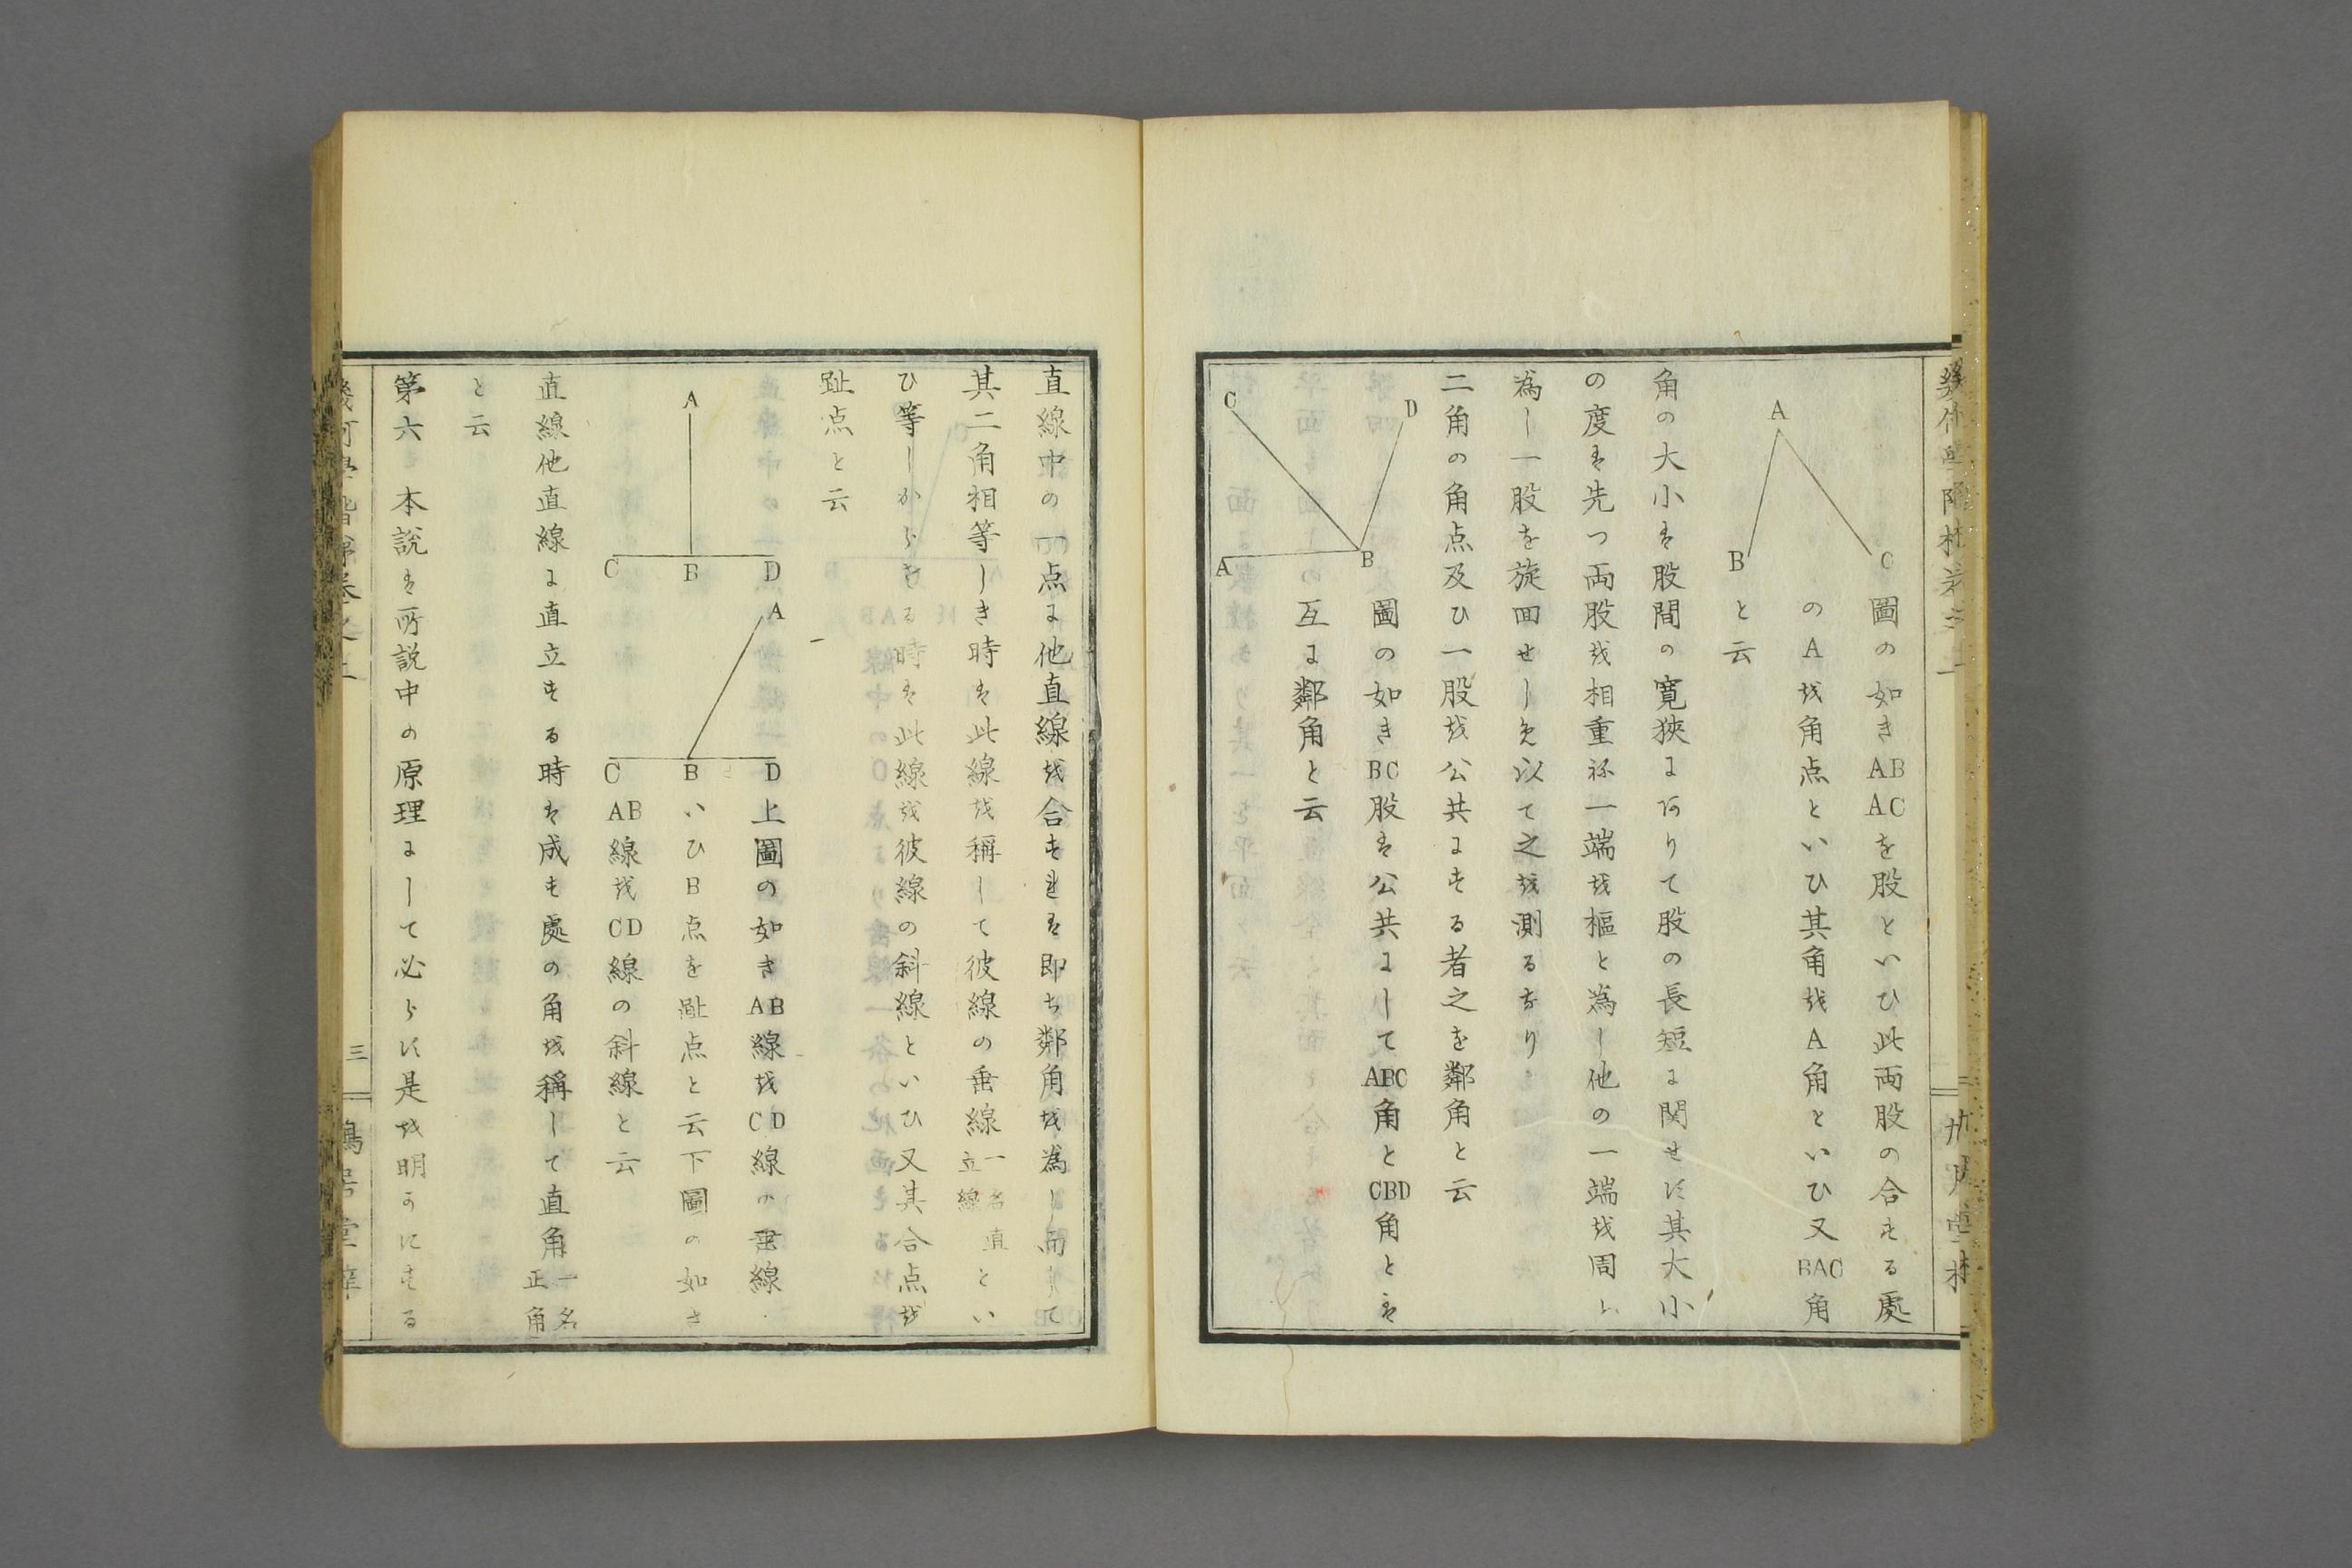 A
B
C
圖の如きAB
ACを股といひ此両股の合する處
のAを角点といひ其角をA角といひ又BAC角
と云
角の大小は股間の寛狹にありて股の長短に関せず其大小
の度は先つ両股を相重ね一端を樞と為し他の一端を周
為し一股を旋回せしめ以て之を測るなり
二角の角点及ひ一股を公共にする者之を鄰角と云
C
D
A
B
圖の如きBC股は公共にしてABC角とCBD角とは
互に鄰角と云
直線中の一点に他直線を合すれは即ち鄰角を為し而して
其二角相等しき時は此線を稱して彼線の垂線
一名直
立線
とい
ひ等しからさる時は此線を彼線の斜線といひ又其合点を
趾点と云
A
C
B
D
A
C
B
D
上圖の如きAB線をCD線の垂線
いひB点を趾点と云下圖の如き
AB線をCD線の斜線と云
直線他直線に直立する時は成す處の角を稱して直角
一名
正角
と云
第六 本説は所説中の原理にして必らず是を明かにする
三